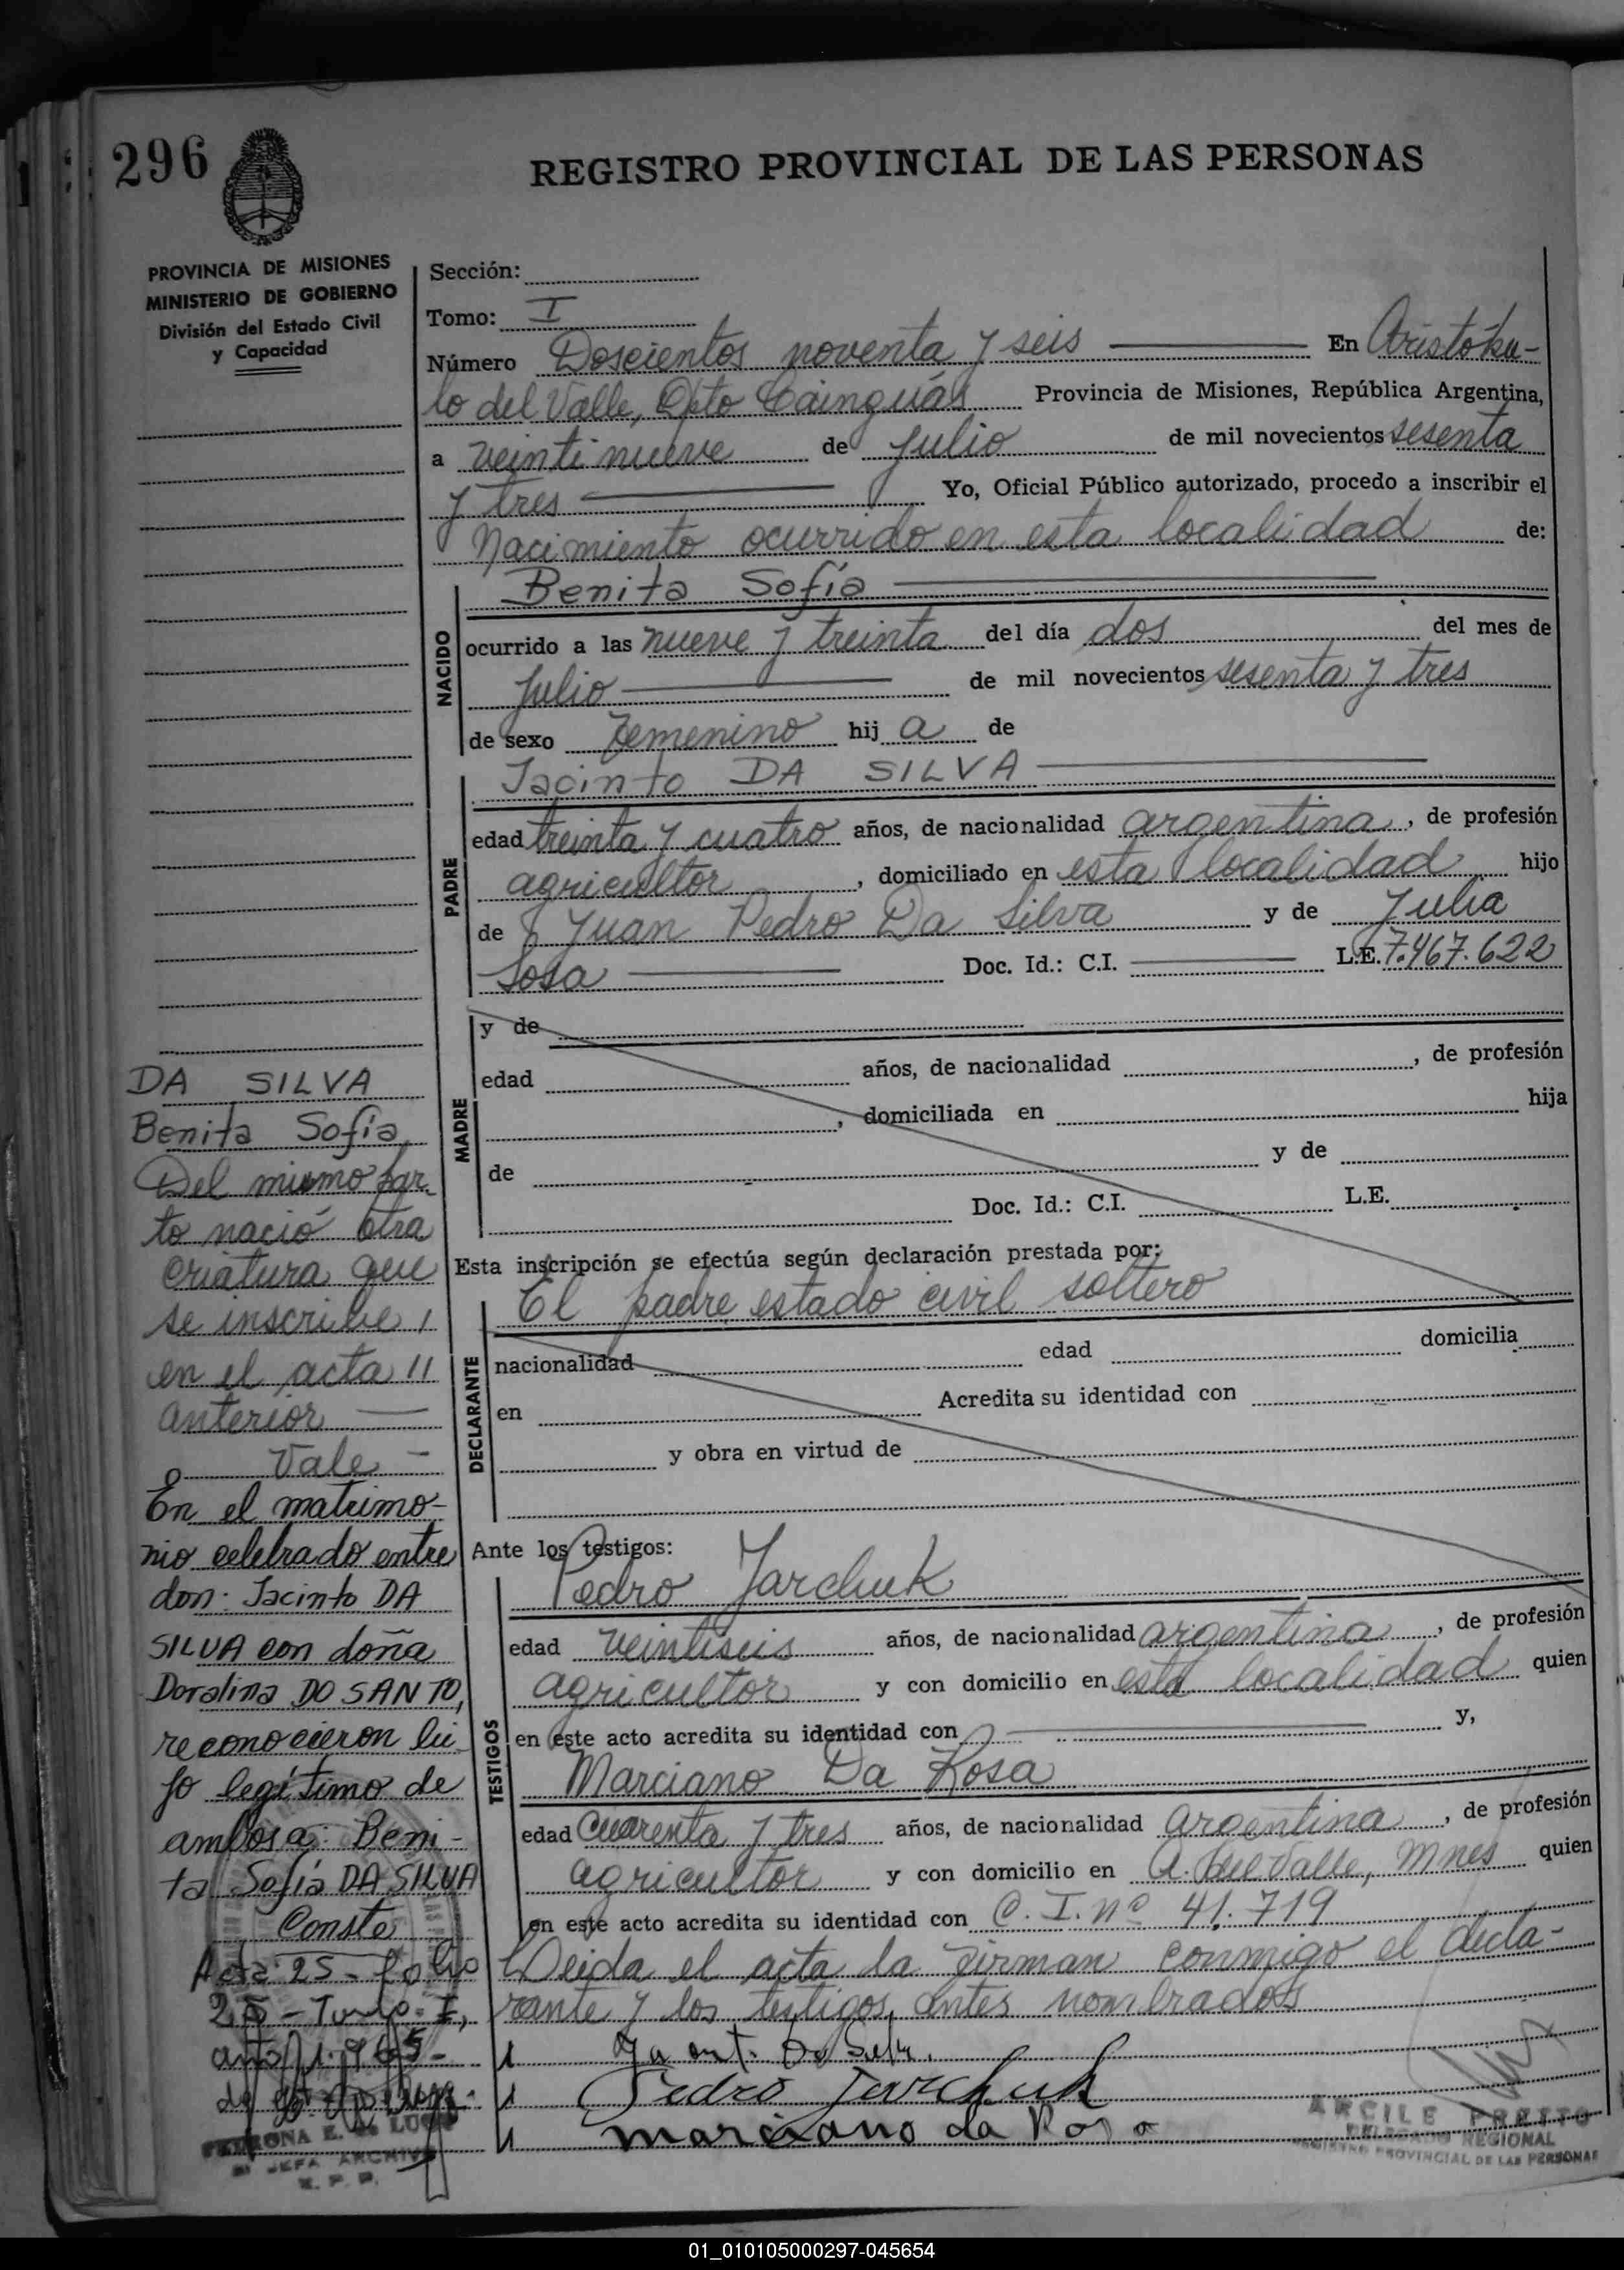 296
REGISTRO PROVINCIAL DE LAS PERSONAS
PROVINCIA DE MISIONES
MINISTERIO DE GOBIERNO
División del Estado Civil
y Capacidad
Sección:
Tomo: I
Número Doscientos noventa y seis En Aristóbu-
lo del Valle, Dpto Cainguás Provincia de Misiones, República Argentina,
a veinti nueve de Julio de mil novecientos sesenta
y tres Yo, Oficial Público autorizado, procedo a inscribir el
Nacimiento ocurrido en esta localidad de:
NACIDO
Benita Sofía
ocurrido a las nueve y treinta del día dos del mes de
Julio de mil novecientos sesenta y tres
de sexo femenino hij a de
PADRE
Jacinto DA SILVA
edad treinta y cuatro años, de nacionalidad argentina, de profesión
agricultor, domiciliado en esta localidad hijo
de Juan Pedro Da Silva y de Julia
Sosa Doc. Id.: C.I. L.E. 7.467.622
MADRE
y de
edad años, de nacionalidad , de profesión
, domiciliada en hija
de y de
Doc. Id.: C.I. L.E.
Esta inscripción se efectúa según declaración prestada por:
DECLARANTE
El padre estado civil soltero
nacionalidad edad domicilia
en Acredita su identidad con
y obra en virtud de
Ante los testigos:
TESTIGOS
Pedro Jarchuk
edad veintiseis años, de nacionalidad argentina, de profesión
agricultor y con domicilio en esta localidad quien
en este acto acredita su identidad con y,
Marciano Da Rosa
edad cuarenta y tres años, de nacionalidad argentina, de profesión
agricultor y con domicilio en A. del Valle, Mnes quien
en este acto acredita su identidad con C. I. nº 41.719
Leida el acta la firman conmigo el decla-
rante y los testigos antes nombrados
Pedro Jarchuk
marciano da Rosa
ARCILE PREITO
DELEGADO REGIONAL
REGISTRO PROVINCIAL DE LAS PERSONAS
DA SILVA
Benita Sofía
Del mismo par-
to nació otra
criatura que
se inscribe
en el acta
anterior
Vale
En el matrimo-
nio celebrado entre
don: Jacinto DA
SILVA con doña
Doralina DO SANTO,
reconocieron hi-
jo legítimo de
ambos a: Beni-
ta Sofía DA SILVA
Conste
Acta 25 - folio
25 - Tomo I,
año 1.965 -
JEFA ARCHIVO
R. P. P.
01_010105000297-045654